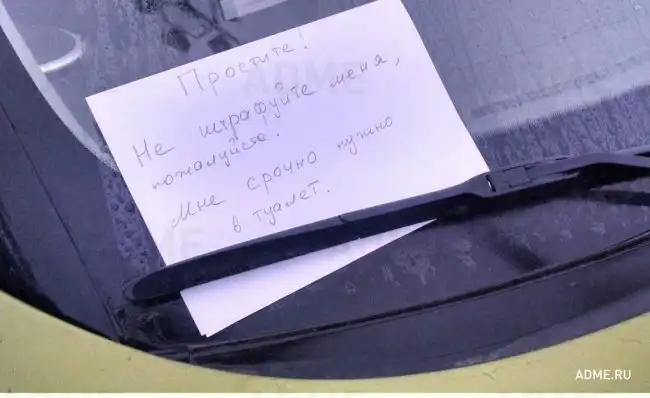 Простите!
Не штрафуйте меня,
пожалуйста.
Мне срочно нужно
в туалет.
ADME.RU